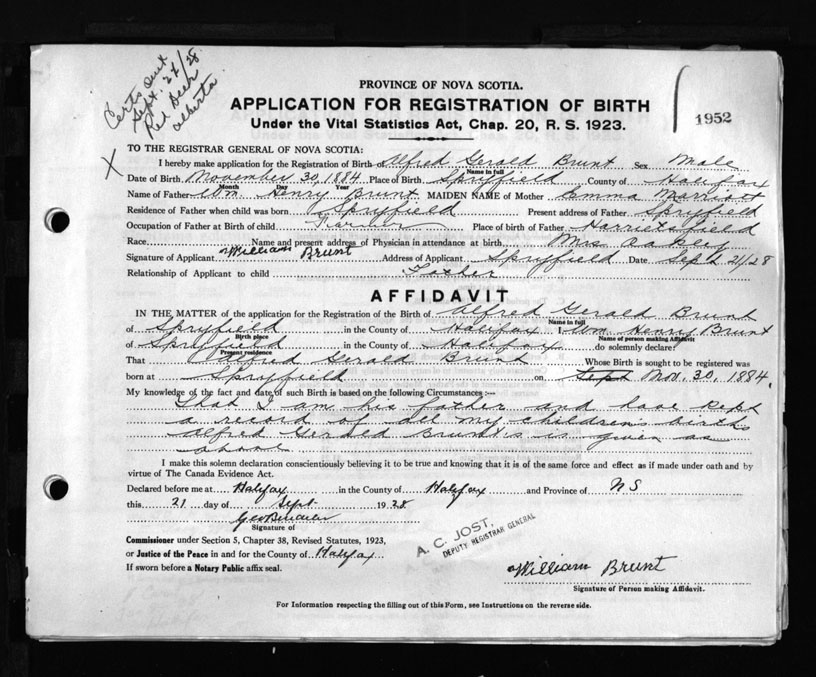 Certs sent
Sept. 22/28
Red Deer
Alberta
PROVINCE OF NOVA SCOTIA.
APPLICATION FOR REGISTRATION OF BIRTH
Under the Vital Statistics Act, Chap. 20, R. S. 1923.
1952
X
TO THE REGISTRAR GENERAL OF NOVA SCOTIA:
I hereby make application for the Registration of Birth of Alfred Gerald Brunt Sex Male
Name in full
Date of Birth November 30, 1884 Place of Birth Spryfield County of Halifax
Month Day Year
Name of Father Wm. Henry Brunt MAIDEN NAME of Mother Emma Marriott
Residence of Father when child was born Spryfield Present address of Father Spryfield
Occupation of Father at Birth of child Farmer Place of birth of Father Harrietsfield
Race Name and present address of Physician in attendance at birth Mrs Oakley
Signature of Applicant William Brunt Address of Applicant Spryfield Date Sept 21/28
Relationship of Applicant to child Father
AFFIDAVIT
IN THE MATTER of the application for the Registration of the Birth of Alfred Gerald Brunt
Name in full
of Spryfield in the County of Halifax I Wm Henry Brunt
Birth place Name of person making Affidavit
of Spryfield in the County of Halifax do solemnly declare:
Present residence
That Alfred Gerald Brunt Whose Birth is sought to be registered was
born at Spryfield on Sept Nov. 30, 1884.
My knowledge of the fact and date of such Birth is based on the following Circumstances:—
That I am his father and have kept
a record of all my children's births
Alfred Gerald Brunt's is given as
above
I make this solemn declaration conscientiously believing it to be true and knowing that it is of the same force and effect as if made under oath and by
virtue of The Canada Evidence Act.
Declared before me at Halifax in the County of Halifax and Province of NS
this 21 day of Sept 1928
Signature of
Commissioner under Section 5, Chapter 38, Revised Statutes, 1923,
or Justice of the Peace in and for the County of Halifax
If sworn before a Notary Public affix seal.
A. C. JOST,
DEPUTY REGISTRAR GENERAL
William Brunt
Signature of Person making Affidavit.
For Information respecting the filling out of this Form, see Instructions on the reverse side.